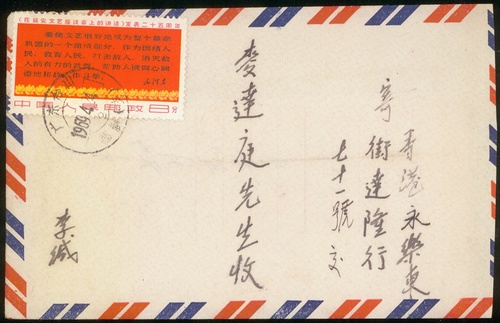 《在延安文艺座谈会上的讲话》发表二十五周年
要使文艺很好地成为整个革命
机器的一个组成部分，作为团结人
民、教育人民、打击敌人、消灭敌
人的有力的武器，帮助人民同心同
德地和敌人作斗争。
中国人民邮政8分
广东
1969.4
寄香港永樂東
街達隆行
七十一號交
麥達庭先生收
李緘